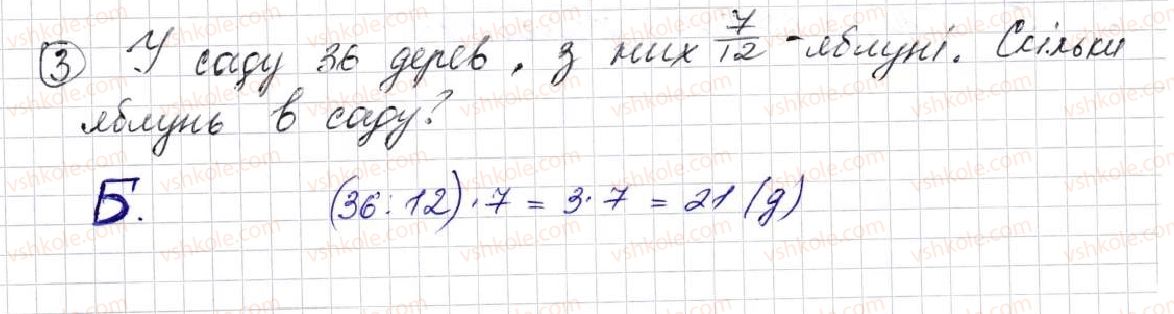 ③ У саду 36 дерев, з них 7/12 - яблуні. Скільки
яблунь в саду?
Б. (36:12)·7 = 3·7 = 21 (д)